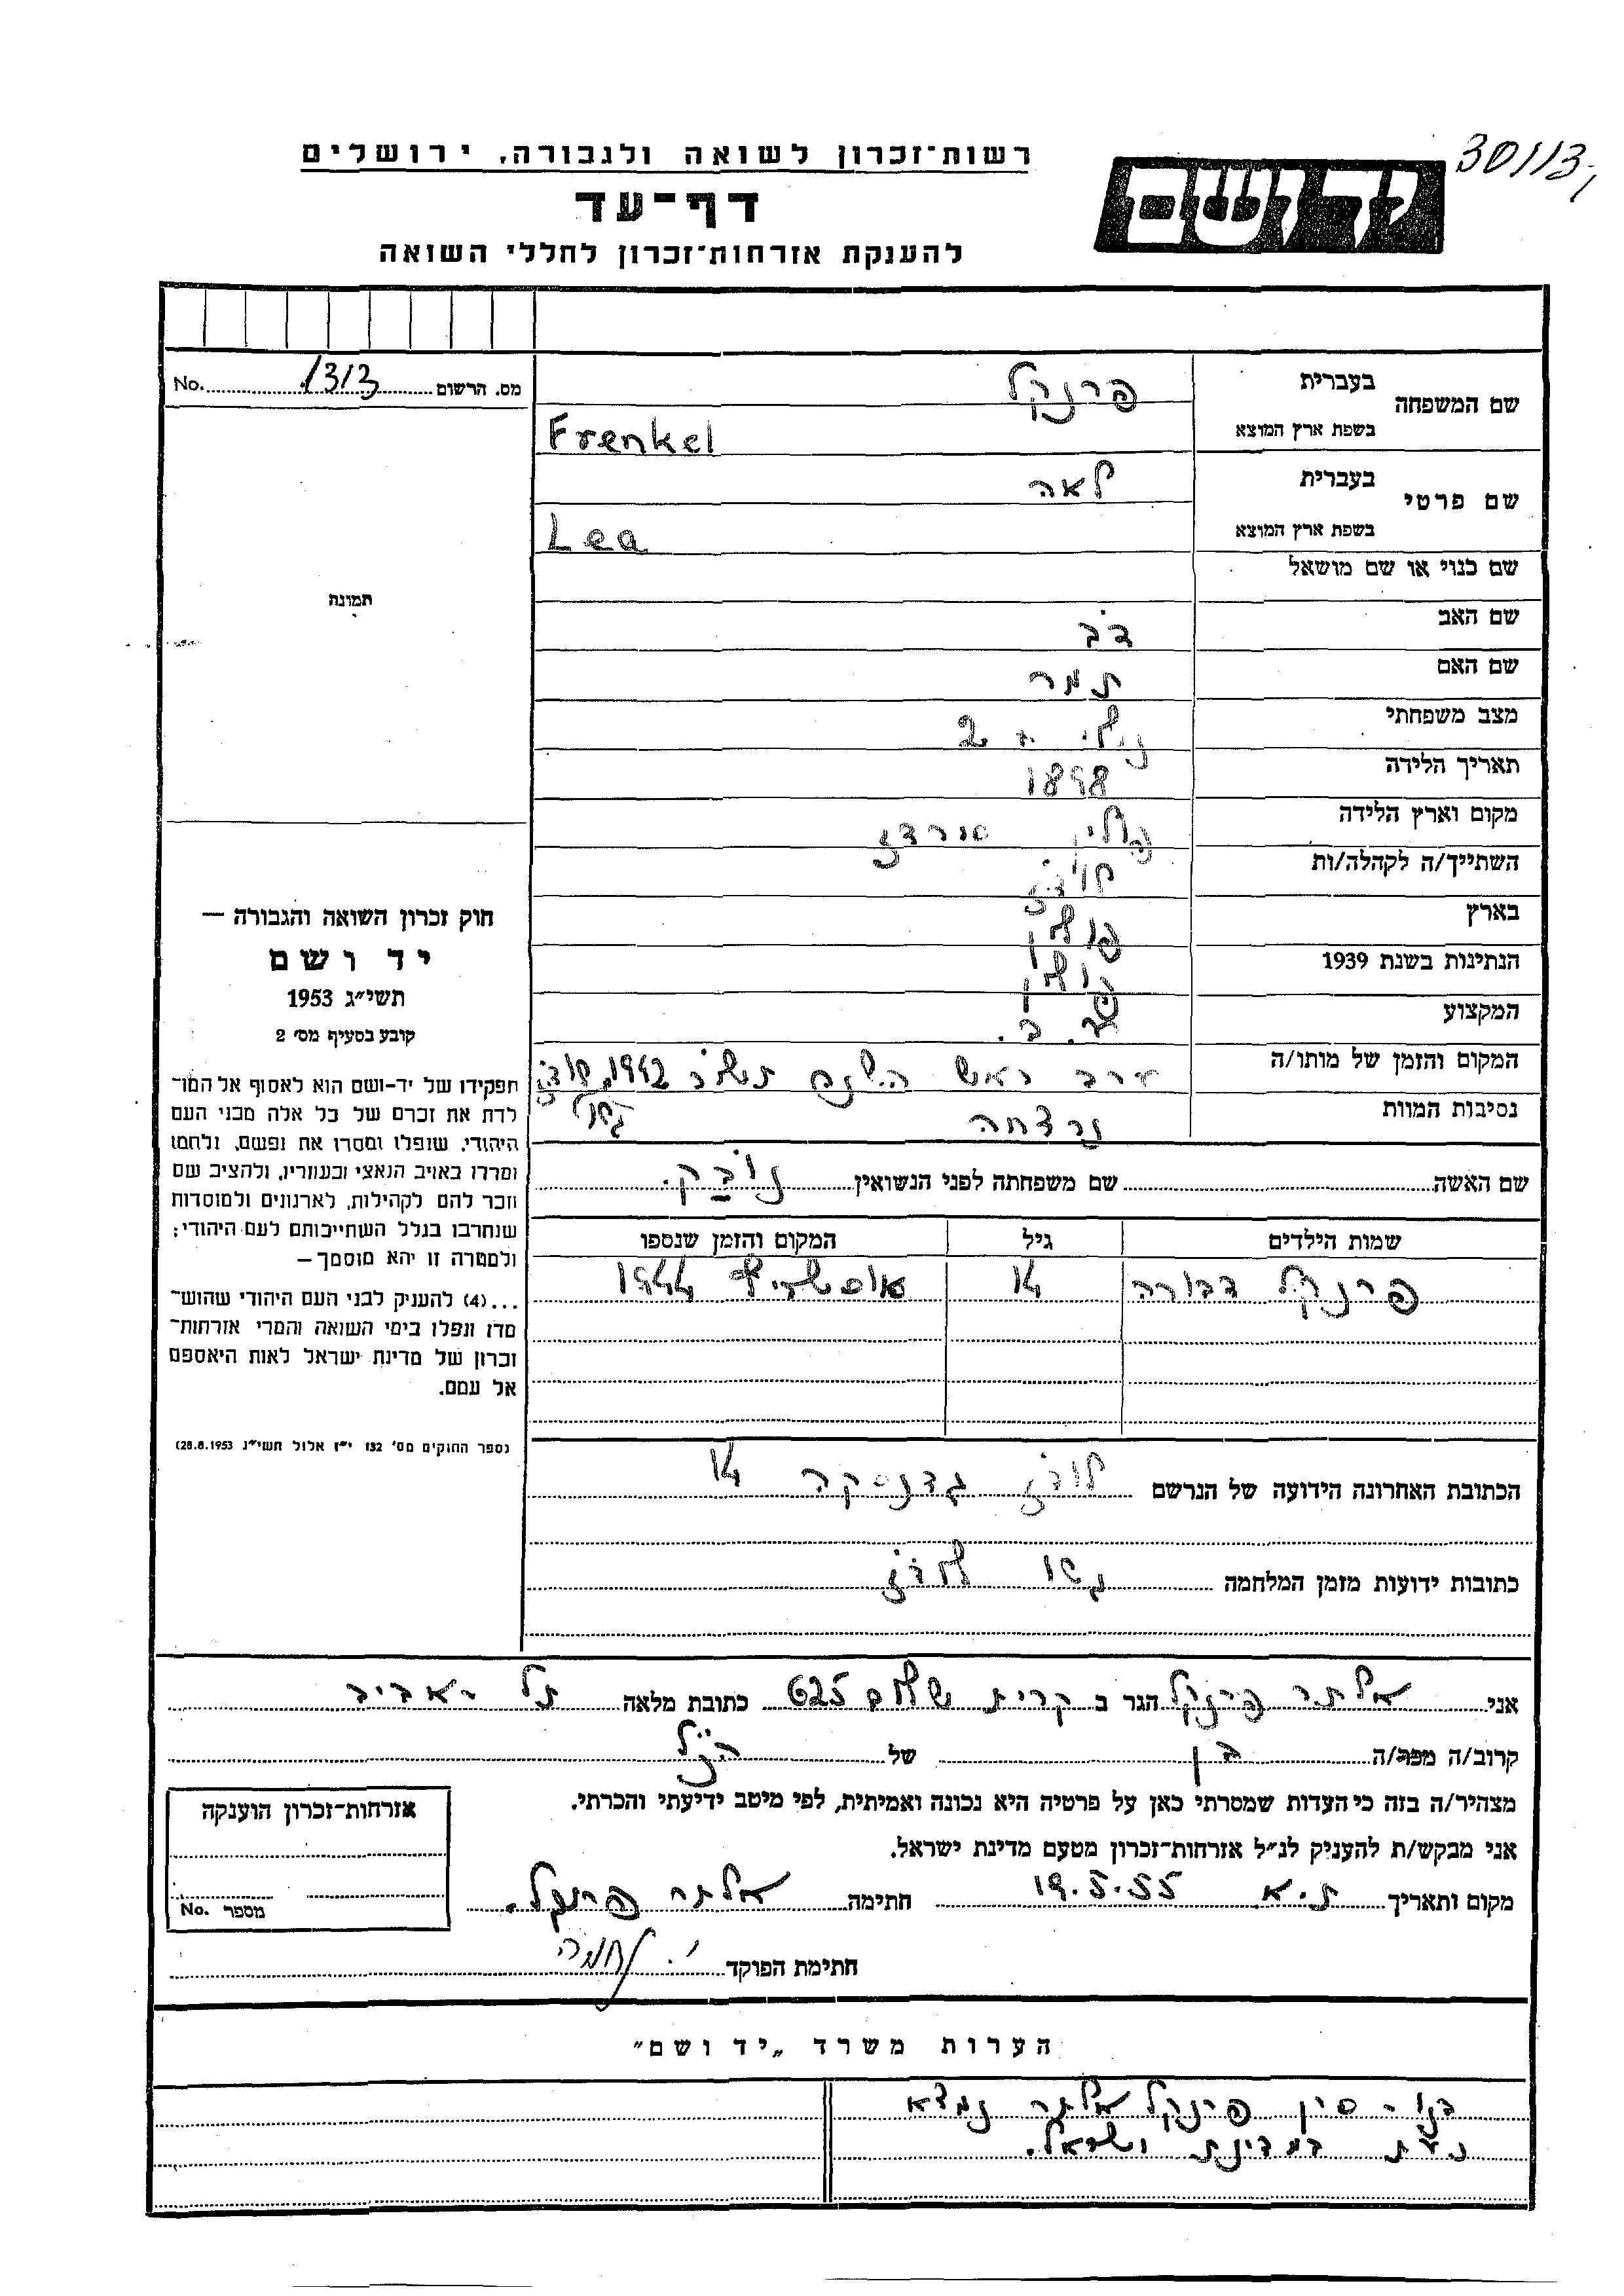 30113
רשות-זכרון לשואה ולגבורה, ירושלים
יד ושם
דף-עד
להענקת אזרחות-זכרון לחללי השואה
מס. הרשום 1313 No.
שם המשפחה
בעברית פרנקל
בשפת ארץ המוצא Frenkel
שם פרטי
בעברית לאה
בשפת ארץ המוצא Lea
שם כנוי או שם מושאל
תמונה
שם האב דב
שם האם תמר
מצב משפחתי + 2
תאריך הלידה 1898
מקום וארץ הלידה
השתייך/ה לקהלה/ות לודז
בארץ פולין
הנתינות בשנת 1939 פולין
המקצוע ע. ב.
המקום והזמן של מותו/ה ערב ראש השנה 1942, לודז
גטו
נסיבות המוות נרצחה
שם האשה שם משפחתה לפני הנשואין נובק.
שמות הילדים גיל המקום והזמן שנספו
פרנקל דבורה 14 אושביץ 1944
הכתובת האחרונה הידועה של הנרשם לודז גדנסקה 14
כתובות ידועות מזמן המלחמה גטו לודז
חוק זכרון השואה והגבורה —
יד ושם
תשי"ג 1953
קובע בסעיף מס' 2
תפקידו של יד-ושם הוא לאסוף אל המו־
לדת את זכרם של כל אלה מבני העם
היהודי, שנפלו ומסרו את נפשם, נלחמו
ומרדו באויב הנאצי ובעוזריו, ולהציב שם
וזכר להם לקהילות, לארגונים ולמוסדות
שנחרבו בגלל השתייכותם לעם היהודי;
ולמטרה זו יהא מוסמך —
...(4) להעניק לבני העם היהודי שהוש־
מדו ונפלו בימי השואה והמרי אזרחות־
זכרון של מדינת ישראל לאות היאספם
אל עמם.
(ספר החוקים מס' 132 י"ז אלול תשי"ג 28.8.1953)
אני אלתר פרנקל הגר ב קרית שלום 625 כתובת מלאה תל-אביב
קרוב/ה מכר/ה בן של הנ"ל
מצהיר/ה בזה כי העדות שמסרתי כאן על פרטיה היא נכונה ואמיתית, לפי מיטב ידיעתי והכרתי.
אני מבקש/ת להעניק לנ"ל אזרחות-זכרון מטעם מדינת ישראל.
מקום ותאריך ת.א 19.5.55 חתימה אלתר פרנקל.
חתימת הפוקד
אזרחות-זכרון הוענקה
מספר No.
הערות משרד „יד ושם"
פרנקל אלתר נמצא
כעת במדינת ישראל.